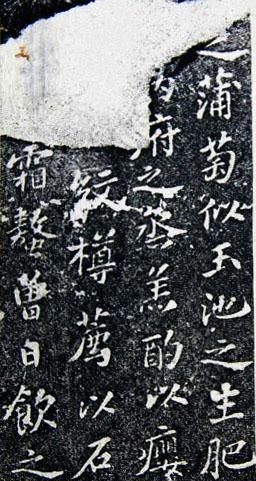 之蒲萄似玉池之生肥
内府之蒸羔酌以癭
紋樽薦以石
霜螯曾日飲之